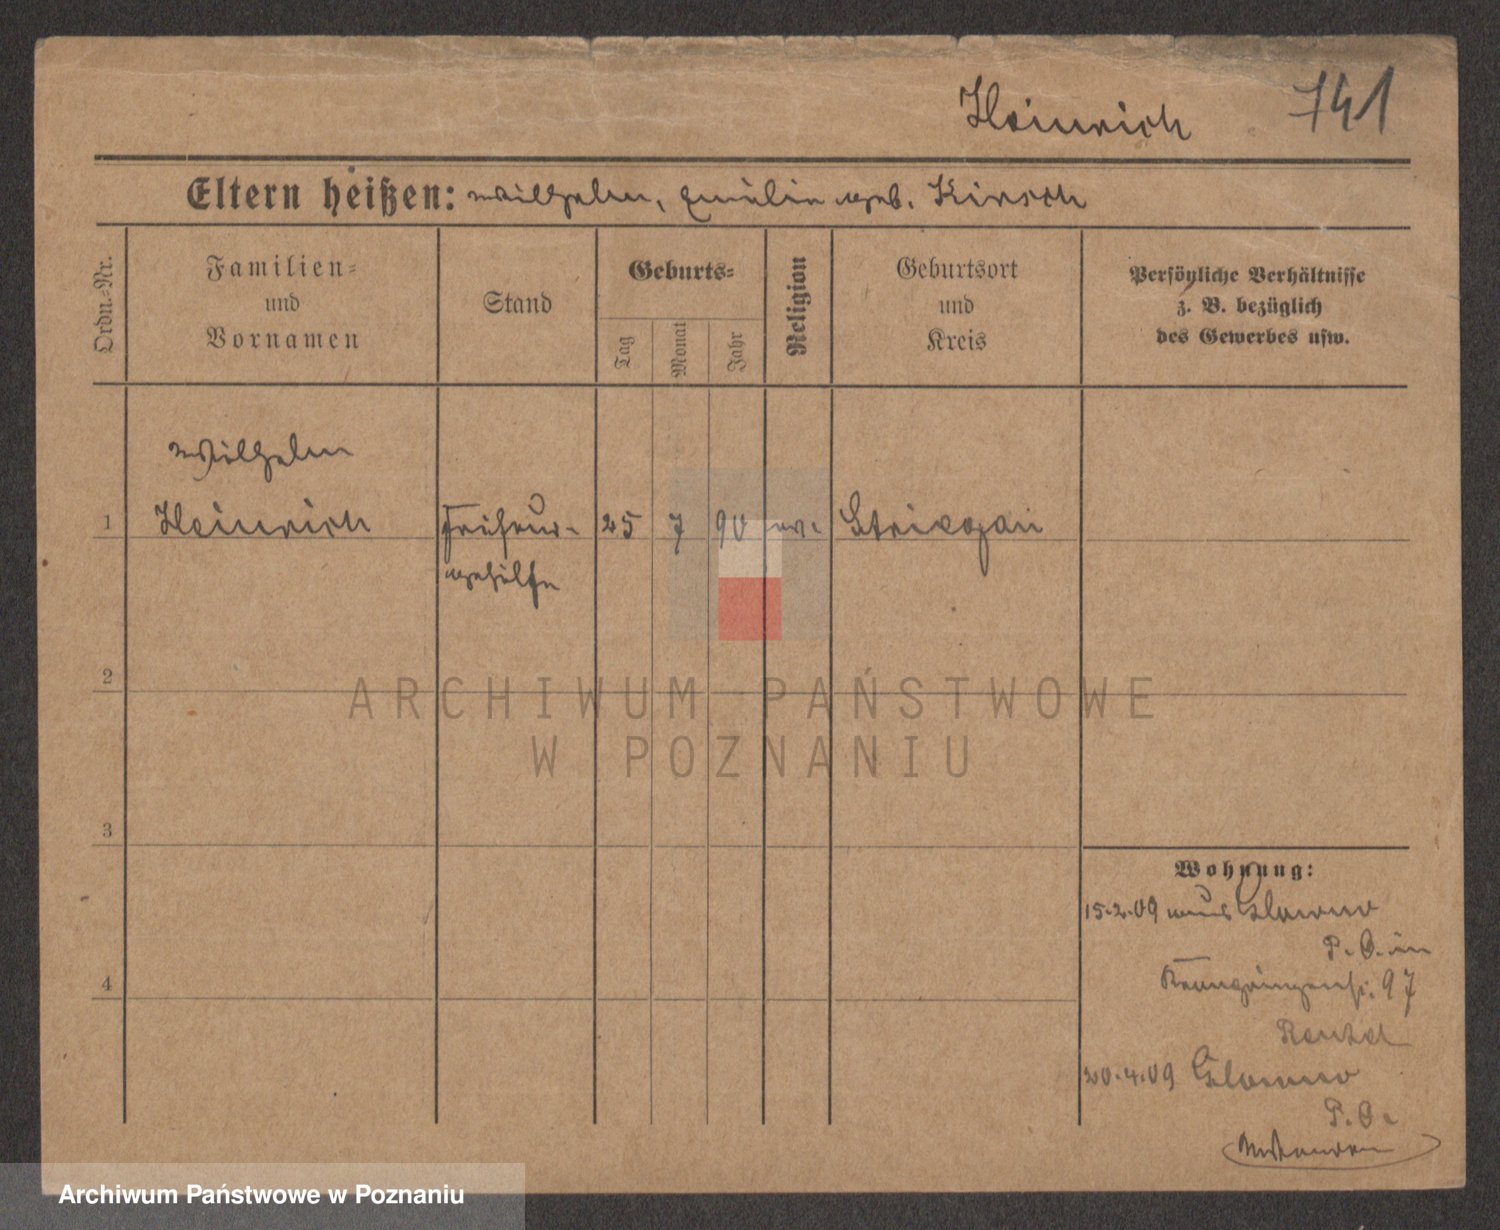 Heinrich 741
Eltern heißen: Wilhelm, Emilie geb. Kirsch
Ordn.-Nr.
Familien-
und
Vornamen
Stand
Geburts-
Tag
Monat
Jahr
Religion
Geburtsort
und
Kreis
Persönliche Verhältnisse
z. B. bezüglich
des Gewerbes usw.
Wilhelm
1 Heinrich Friseur- 25 7 90 ev. Striegau
gehilfe
2
3
4
Wohnung:
15.2.09 aus Glowno
P. O. in
97
20.4.09 Glowno
P. O.
ARCHIWUM PAŃSTWOWE
W POZNANIU
Archiwum Państwowe w Poznaniu